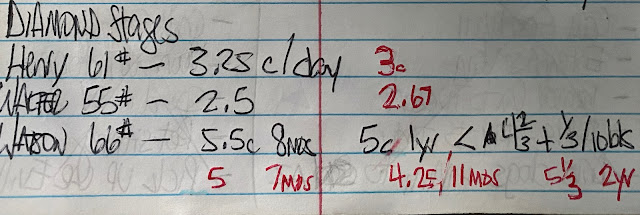 DIAMOND Stages
Henry 61# — 3.25 c/day 3c
WALTER 55# — 2.5 2.67
WATSON 66# — 5.5c 8mos 5c 1yr, < 4 2/3 + 1/3 /10bks
5 7mos 4.25, 11mos 5 1/3 2yr